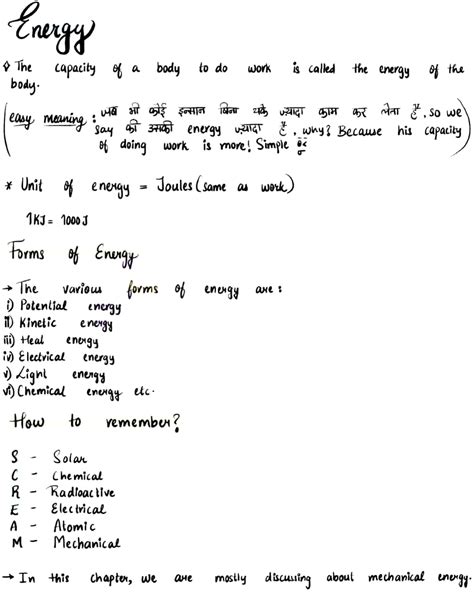 Energy
◊ The capacity of a body to do work is called the energy of the
body.
(easy meaning : जब भी कोई इन्सान बिना थके ज्यादा काम कर लेता है, so we
say की उसकी energy ज्यादा है, why? Because his capacity
of doing work is more! Simple)
* Unit of energy = Joules (same as work)
1KJ = 1000J
Forms of Energy
→ The various forms of energy are :
i) Potential energy
ii) Kinetic energy
iii) Heat energy
iv) Electrical energy
v) Light energy
vi) Chemical energy etc.
How to remember?
S - Solar
C - Chemical
R - Radioactive
E - Electrical
A - Atomic
M - Mechanical
→ In this chapter, we are mostly discussing about mechanical energy.